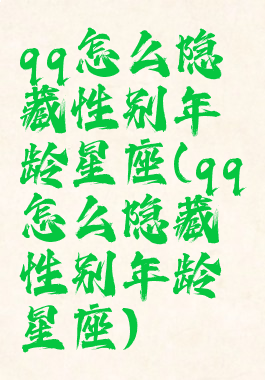 qq怎么隐
藏性别年
龄星座(qq
怎么隐藏
性别年龄
星座)